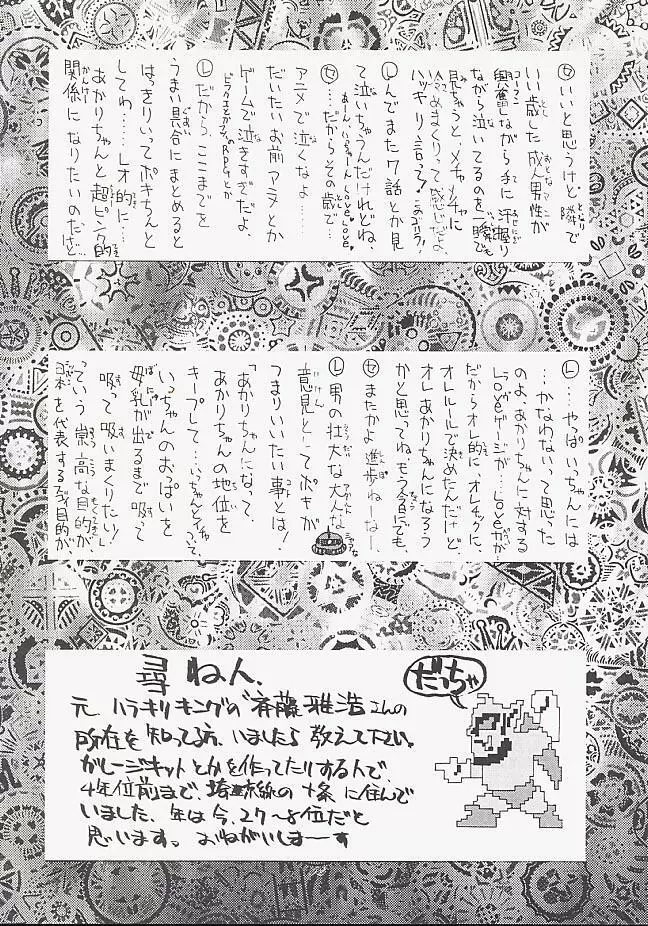 いいと思うけど、隣で
いい歳した成人男性が
興奮しながら手に汗握り
ながら泣いてるのを一瞬でも
見ちゃうと、メチャメチャに
ハッキリ言って!
んでまた7話とか見
て泣いちゃうんだけれどね、
…だからその歳で…
アニメで泣くなよ…
だいたいお前アニメとか
ゲームで泣きすぎだよ、
RPGとか
だからここまでを
うまい具合にまとめると
はっきりいってポキちんと
してわ……レオ的に……
あかりちゃんと超ピンク的
関係になりたいのだけど…
……やっぱいっちゃんには
…かなわないって思った
のよ、あかりちゃんに対する
Loveゲージが…Loveが
だからオレ的に、オレチックに、
オレルールで決めたんだけど、
オレあかりちゃんになろう
かと思ってね、もう今日にでも、
またかよ進歩ねーなー、
男の壮大な大人な
意見としてポキが
つまりいいたい事とは!
「あかりちゃんになって、
あかりちゃんの地位を
キープして、
いっちゃんのおぱいを
母乳が出るまで吸って
吸って吸いまくりたい!」
っていう崇高な目的が、
日本を代表する 目的が、
尋ねん、
だっちゃ
元、ハラキリキングの"斉藤雅浩"さんの
所在を知ってる方、いましたら教えて下さい。
ガレージキットとかを作ってたりする人で、
4年位前まで、埼京線の十条に住んで
いました、年は今、27〜8位だと
思います。おねがいしまーす